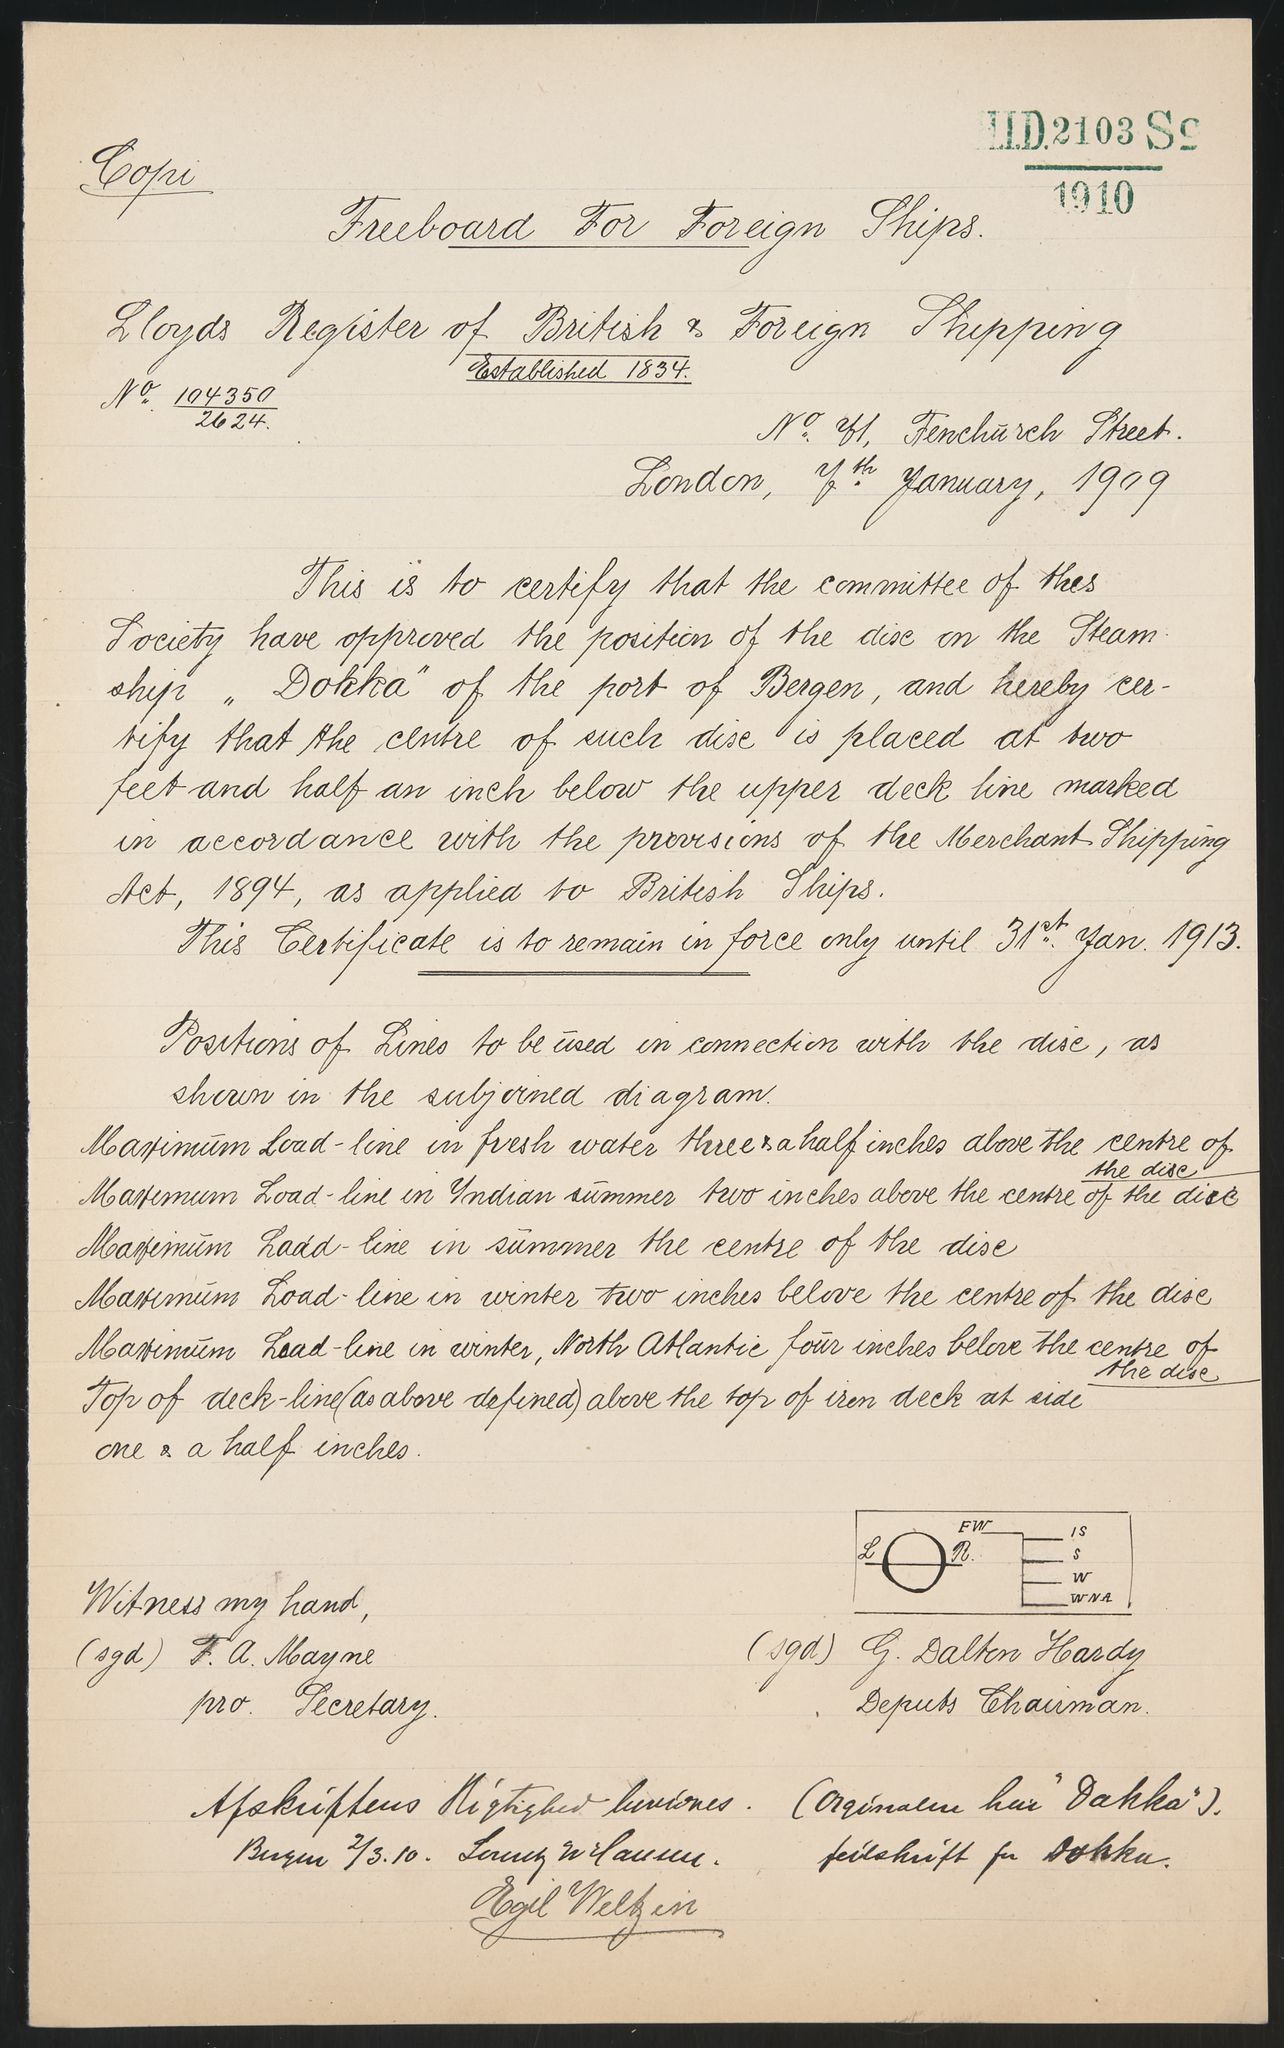 H.D. 2103 Sø
1910
Copi
Freeboard For Foreign Ships.
Lloyds Register of British & Foreign Shipping
Established 1834.
No. 104350
2624.
No. 71, Fenchurch Street.
London, 7th January, 1909
This is to certify that the committee of thes
Society have approved the position of the disc on the Steam
ship „ Dokka" of the port of Bergen, and hereby cer-
tify that the centre of such disc is placed at two
feet and half an inch below the upper deck line marked
in accordance with the provisions of the Merchant Shipping
Act, 1894, as applied to British Ships.
This Certificate is to remain in force only until 31st. Jan. 1913.
Positions of Lines to be used in connection with the disc, as
shown in the subjoined diagram.
Maximum Load-line in fresh water three & a half inches above the centre of
the disc
Maximum Load-line in Indian summer two inches above the centre of the disc
Maximum Ladd-line in summer the centre of the disc
Maximum Load-line in winter two inches belove the centre of the disc
Maximum Load-line in winter, North Atlantic four inches belove the centre of
the disc
Top of deck-line (as above defined) above the top of iron deck at side
one & a half inches.
FW IS
L R. S
W
WNA
Witness my hand,
(sgd) F. A. Mayne
pro. Secretary.
(sgd) G. Dalton Hardy
Deputs Chairman.
Afskriftens Rigtighed bevidnes. (Orginalen har "Dakka").
Bergen 2/3.10. feilskrift for Dokka.
Egil Weltzin